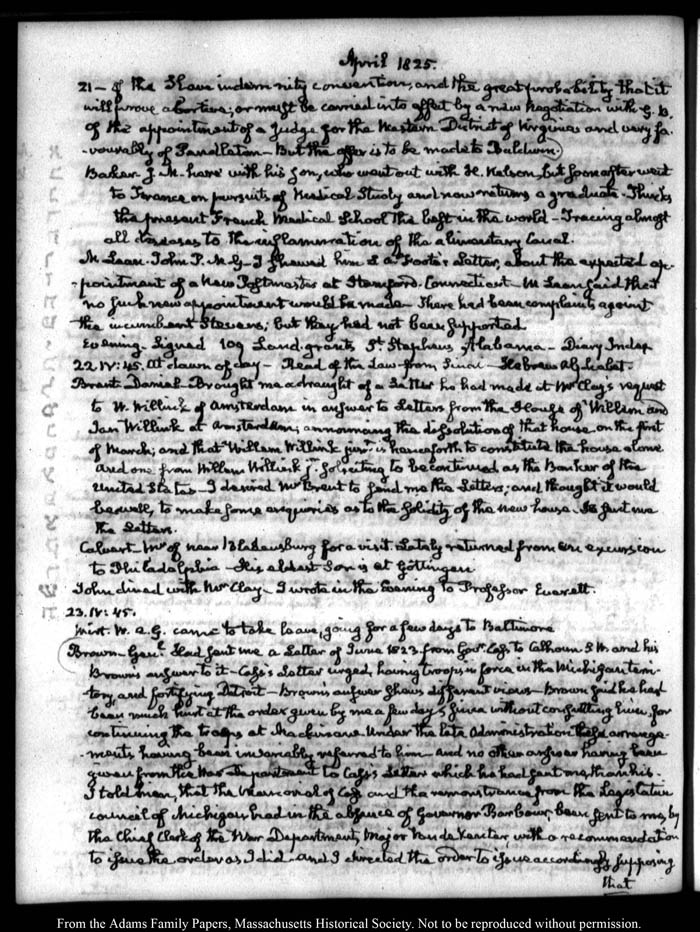 April 1825.
21 – of the Slave indemnity convention, and the great probability that it
will prove abortive; or must be carried into effect by a new Negotiation with G. B.
of the appointment of a Judge for the Western District of Virginia and very fa-
-vourably of Pendleton – But the offer is to be made to Baldwin.
Baker J. M. here with his Son, who went out with H. Nelson, but soon after went
to France on pursuits of Medical Study and now returns a graduate. Thinks
the present French Medical School the best in the world – Tracing almost
all diseases to the inflammation of the alimentary Canal.
McLean. John P. M. G – I shewed him Foote's Letter, about the expected ap-
-pointment of a New Postmaster at Stamford, Connecticut. McLean said that
no such new appointment would be made – There had been complaints against
the incumbent Stevens; but they had not been supported
Evening. Signed 109 Land-grants St. Stephens, Alabama – Diary Index
22. IV: 45. At dawn of day – Read of the Law from Sinai – Hebrew Alphabet.
Brent Daniel Brought me a draught of a Letter he had made at Mr Clay's request
to W. Willink of Amsterdam in answer to Letters from the House of Willem and
Jan Willink at Amsterdam; announcing the dissolution of that house, on the first
of March; and that Willem Willink junr. is henceforth to constitute the house alone
and one from Willem Willink j. soliciting to be continued as the Banker of the
United States – I desired Mr Brent to send me the Letters; and thought it would
be well, to make some enquiries as to the solidity of the new house. He sent me
the Letters.
Calvert – Mr of near Bladensburg for a visit. Lately returned from an excursion
to Philadelphia – His eldest Son is at Göttingen
John dined with Mr Clay – I wrote in the Evening to Professor Everett.
23. IV: 45.
Mint. W. a. G. came to take leave, going for a few days to Baltimore
Brown – Genl. Had sent me a Letter of June 1823 from Govr. Cass to Calhoun S. W. and his
Brown's answer to it – Cass's Letter urged, having troops in force in the Michigan terri-
-tory, and fortifying Detroit – Brown's answer shews different views – Brown said he had
been much hurt at the order given by me a few days since without consulting him, for
continuing the troops at Mackinaw. Under the late Administration these arrange-
-ments having been invariably referred to him – and no other answer having been
given from the War Department to Cass's Letter which he had sent me, than his.
I told him, that the Memorial of Cass and the remonstrance from the Legislative
council of Michigan had in the absence of Governor Barbour been sent to me, by
the Chief Clerk of the War Department, Major Vandeventer, with a recommendation
to issue the order as I did – and I directed the order to issue accordingly supposing
that
From the Adams Family Papers, Massachusetts Historical Society. Not to be reproduced without permission.